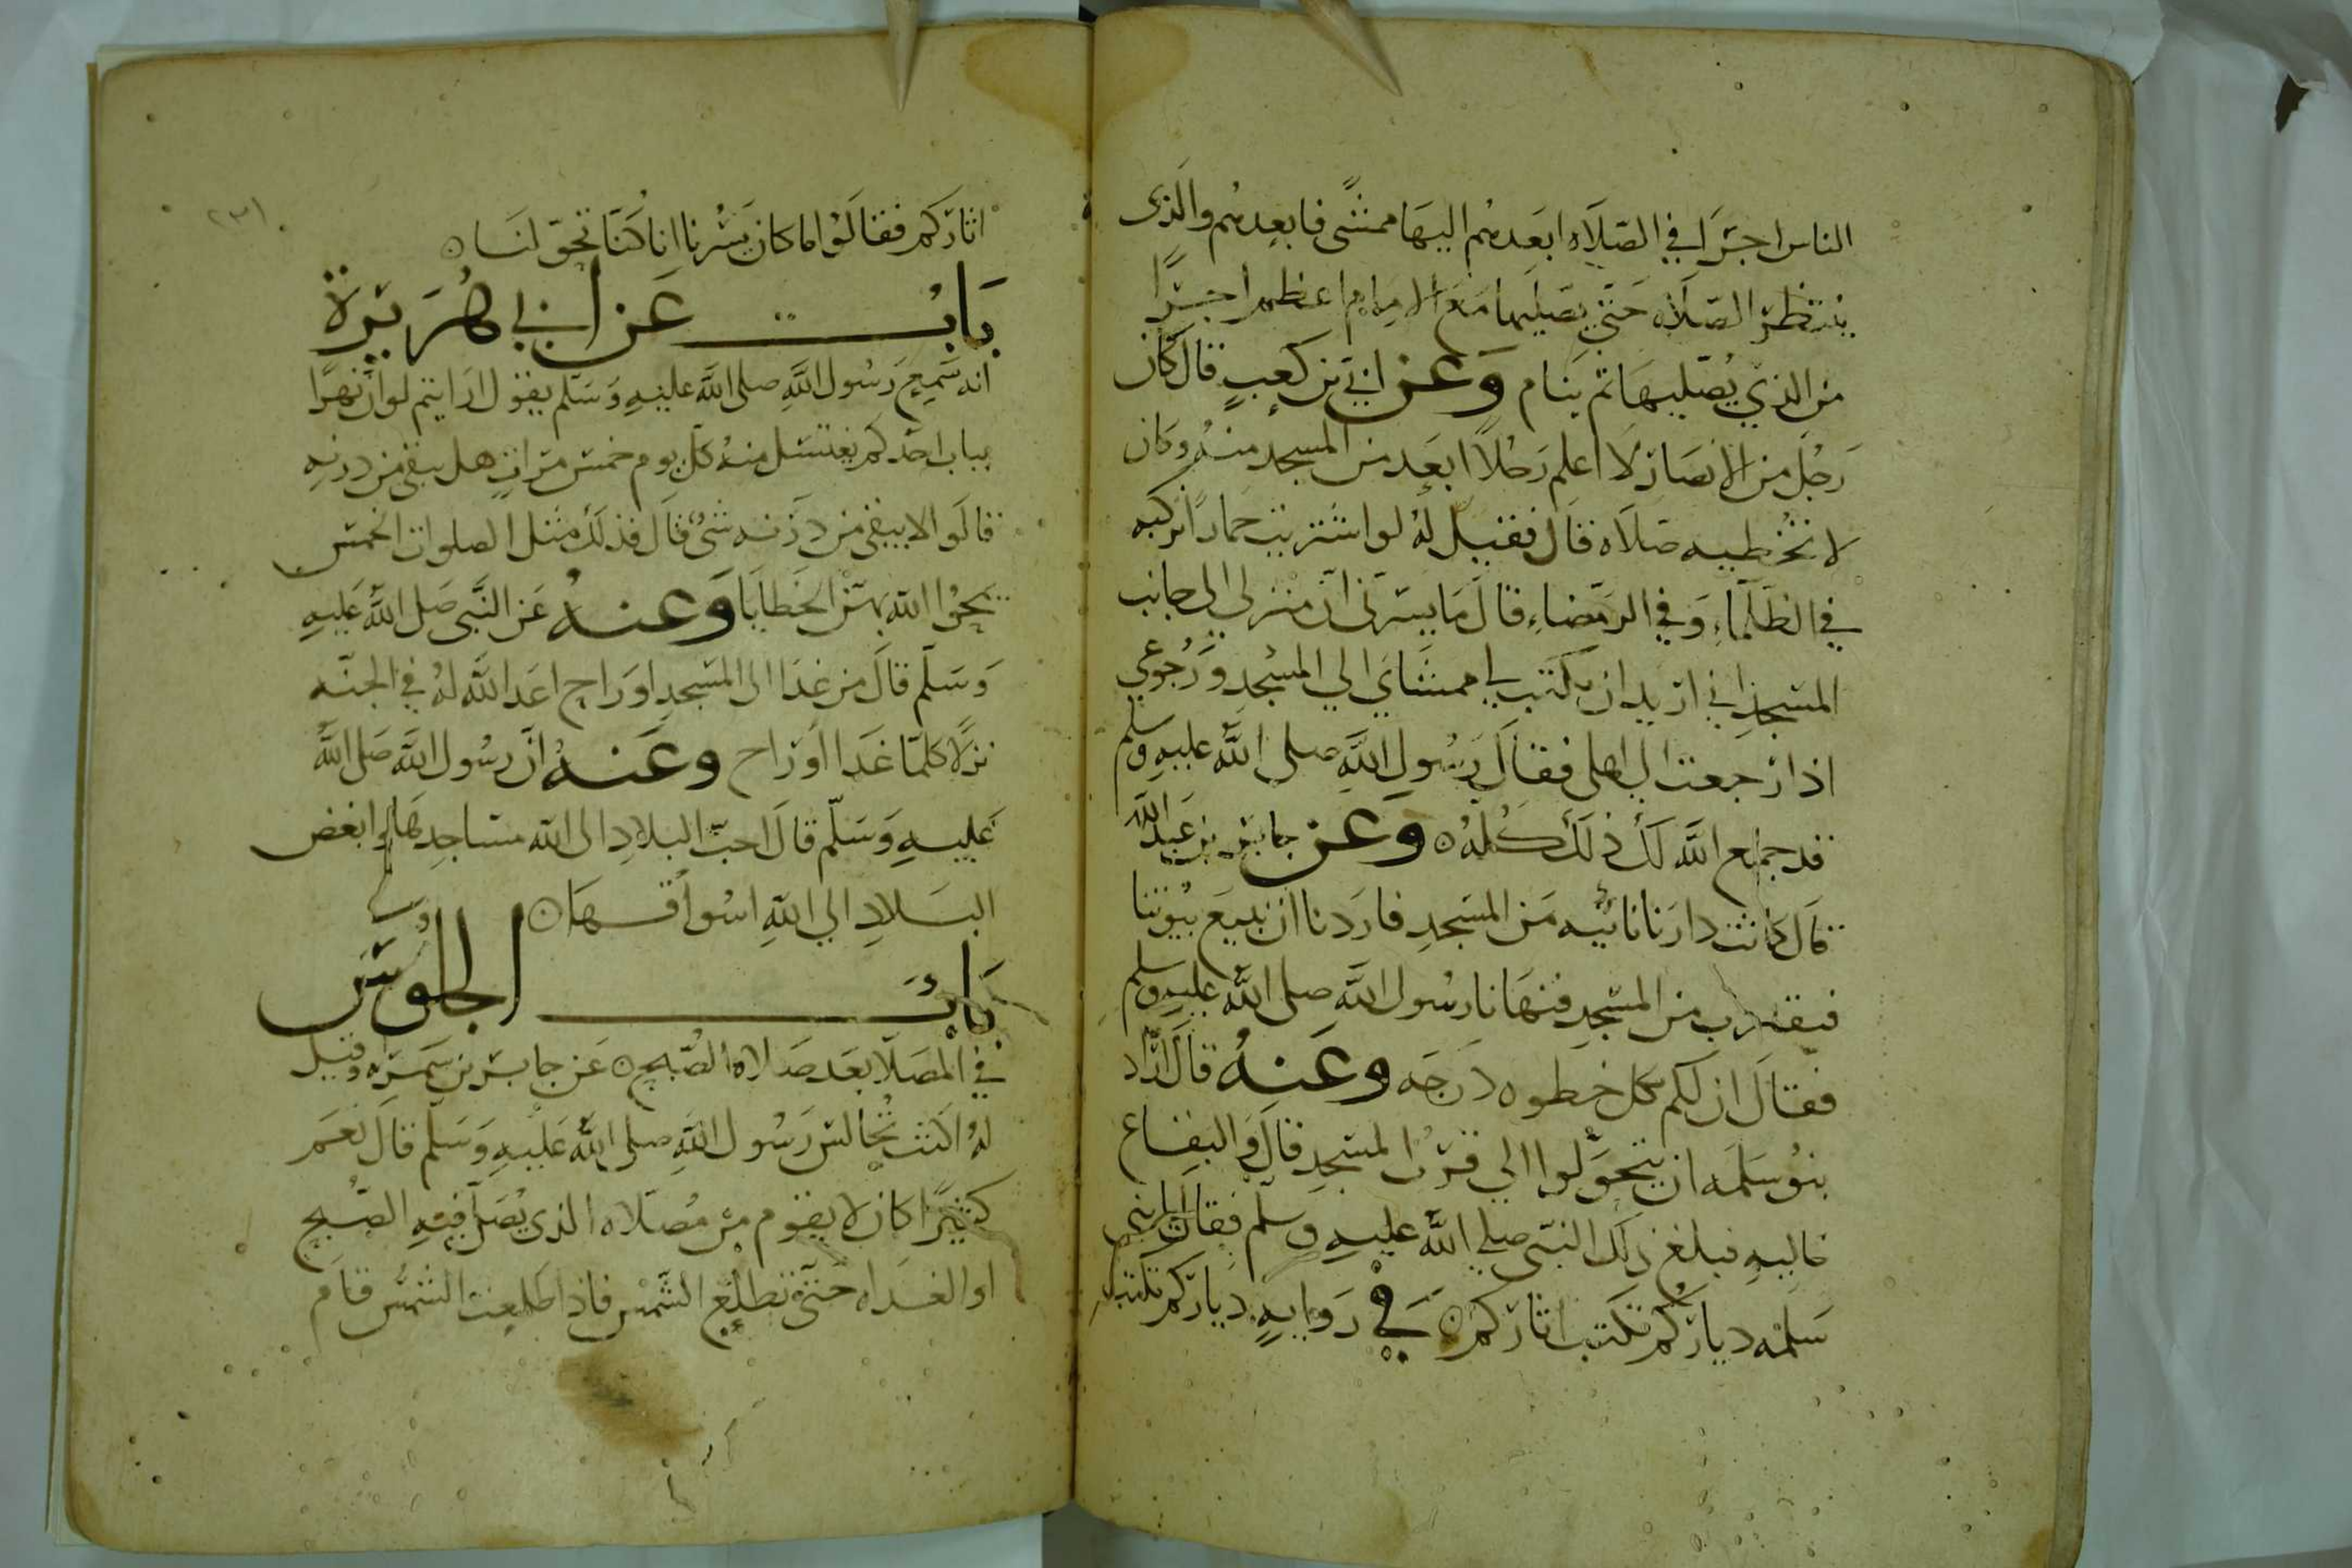 الناس اجرا في الصلاه ابعدهم اليها ممشى فابعدهم والذى
ينتظر الصلاه حتى يصليها مع الامام اعظم اجرا
من الذي يصليها ثم ينام وعن ابي بن كعب قال كان
رجل من الانصار لا اعلم رجلا ابعد من المسجد منه وكان
لا تخطيه صلاه قال فقيل له لو اشتريت حمارا تركبه
في الظلماء وفي الرمضاء قال ما يسرنى ان منزلى الى جانب
المسجد اني اريد ان يكتب لي ممشاي الي المسجد ورجوعي
اذا رجعت الى اهلى فقال رسول الله صلى الله عليه وسلم
قد جمع الله لك ذلك كله وعن جابر بن عبد الله
قال كانت دارنا نائيه من المسجد فاردنا ان نبيع بيوتنا
فنقترب من المسجد فنهانا رسول الله صلى الله عليه وسلم
فقال ان لكم بكل خطوه درجه وعنه قال اراد
بنو سلمه ان يتحولوا الي قرب المسجد قال والبقاع
خاليه فبلغ ذلك النبى صلى الله عليه وسلم فقال يا بنى
سلمه دياركم تكتب اثاركم في روايه دياركم تكتب
٢٣١
اثاركم فقالوا ما كان يسرنا انا كنا تحولنا
باب عن ابي هريرة
انه سمع رسول الله صلى الله عليه وسلم يقول ارايتم لو ان نهرا
بباب احدكم يغتسل منه كل يوم خمس مرات هل يبقى من درنه
قالوا لا يبقى من درنه شى قال فذلك مثل الصلوات الخمس
يمحوا الله بهن الخطايا وعنه عن النبى صلى الله عليه
وسلم قال من غدا الى المسجد او راح اعد الله له في الجنه
نزلا كلما غدا او راح وعنه ان رسول الله صلى الله
عليه وسلم قال احب البلاد الى الله مساجدها وابغض
البلاد الي الله اسواقها
باب الجلوس
في المصلا بعد صلاه الصبح عن جابر بن سمره وقيل
له اكنت تجالس رسول الله صلى الله عليه وسلم قال نعم
كثيرا كان لا يقوم من مصلاه الذى يصلى فيه الصبح
او الغداه حتى تطلع الشمس فاذا طلعت الشمس قام